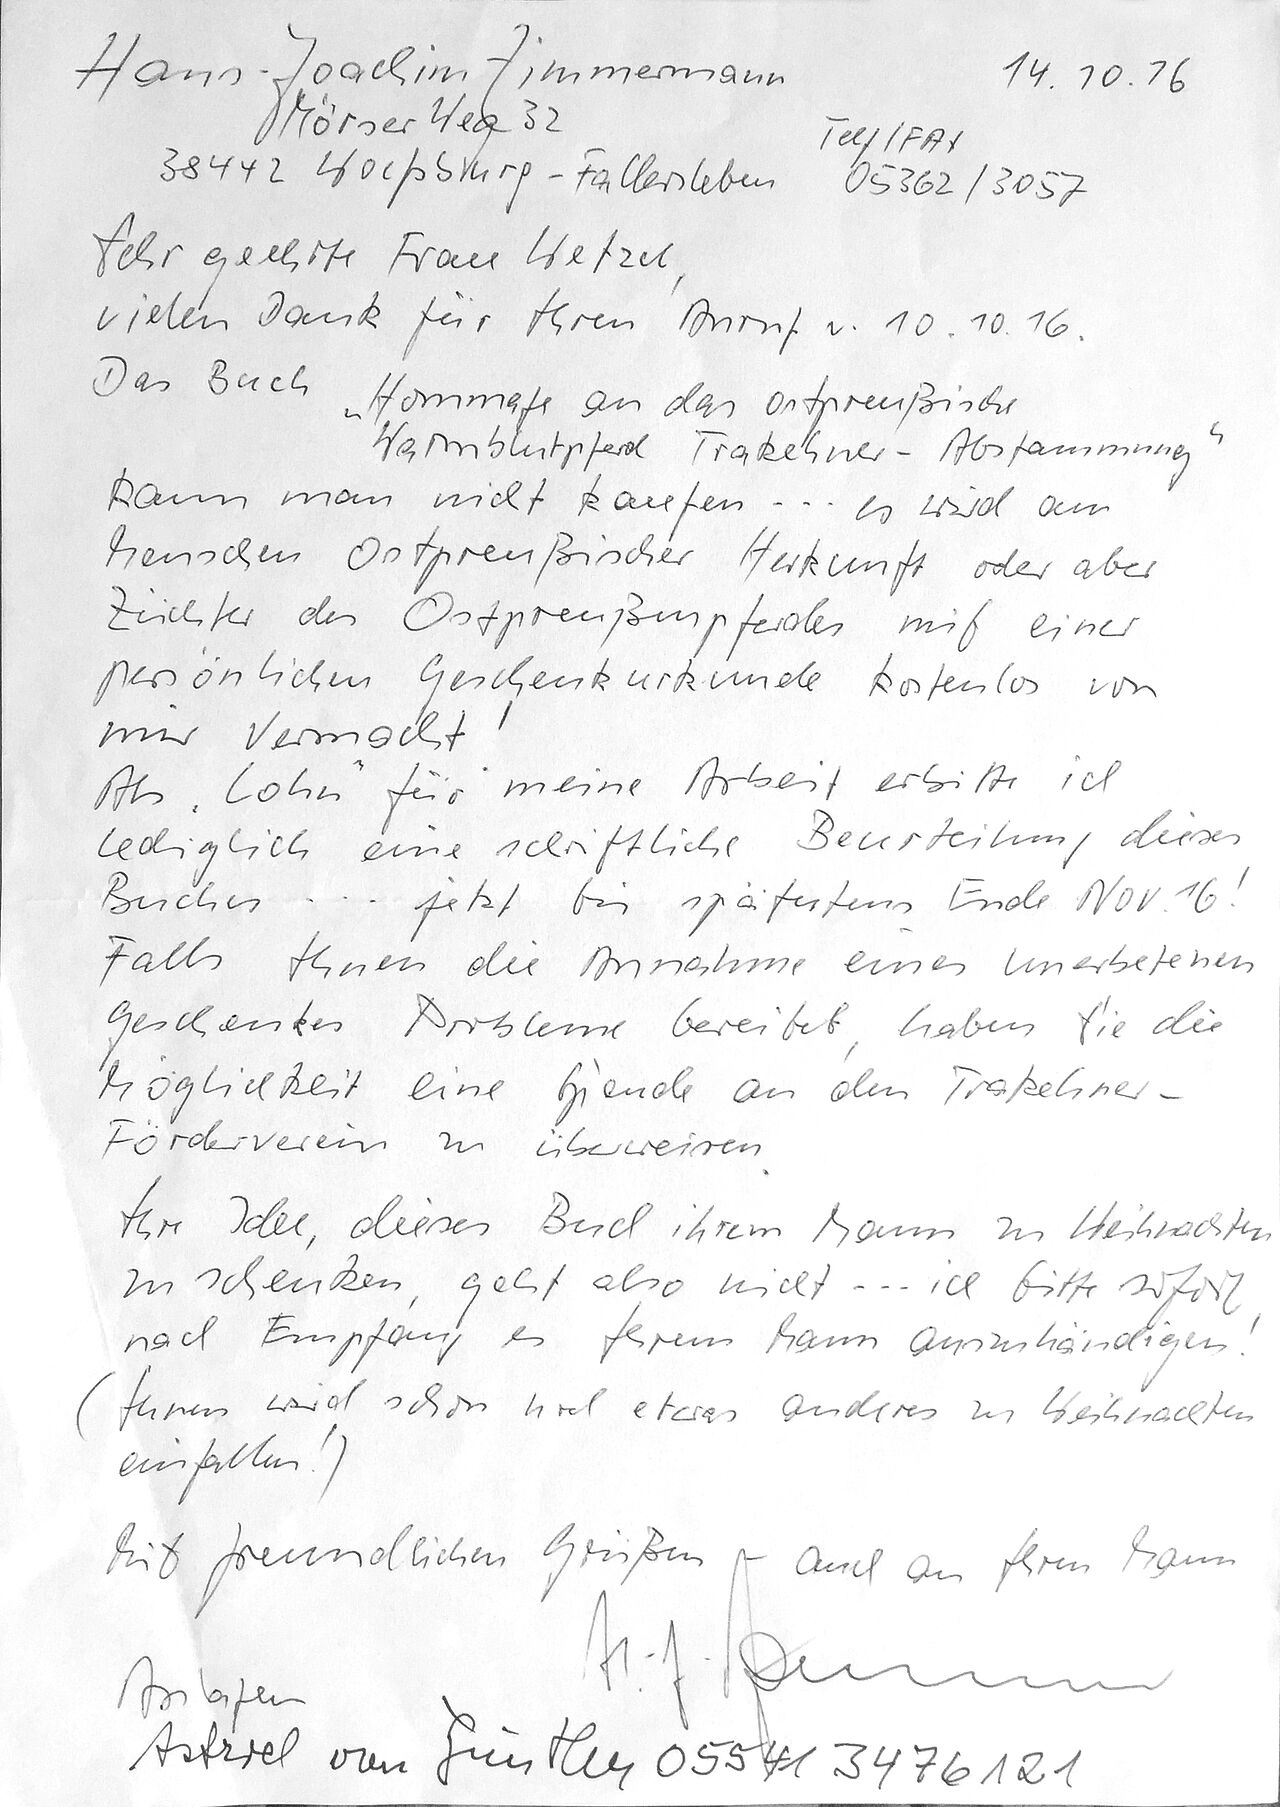 Hans-Joachim Zimmermann 14.10.16
Mörser Weg 32
Tel/FAX
38442 Wolfsburg-Fallersleben 05362/3057
Sehr geehrte Frau Wetzel,
vielen Dank für Ihren Anruf v. 10.10.16.
Das Buch „Hommage an das ostpreußische
Warmblutpferd Trakehner-Abstammung“
kann man nicht kaufen --- es wird an
Menschen Ostpreußischer Herkunft oder aber
Züchter des Ostpreußenpferdes mit einer
persönlichen Geschenkurkunde kostenlos von
mir vermacht!
Als „Lohn“ für meine Arbeit erbitte ich
lediglich eine schriftliche Beurteilung dieses
Buches --- jetzt bis spätestens Ende Nov. 16!
Falls Ihnen die Annahme eines unerbetenen
Geschenkes Probleme bereitet, haben Sie die
Möglichkeit eine Spende an den Trakehner-
Förderverein zu überweisen.
Ihre Idee, dieses Buch ihrem Mann zu Weihnachten
zu schenken, geht also nicht --- ich bitte sofort
nach Empfang es Ihrem Mann auszuhändigen!
(Ihnen wird schon noch etwas anderes zu Weihnachten
einfallen!)
Mit freundlichen Grüßen – auch an Ihren Mann
H.-J. Zimmermann
Anlagen
Astrid von Günther 05541 3476121